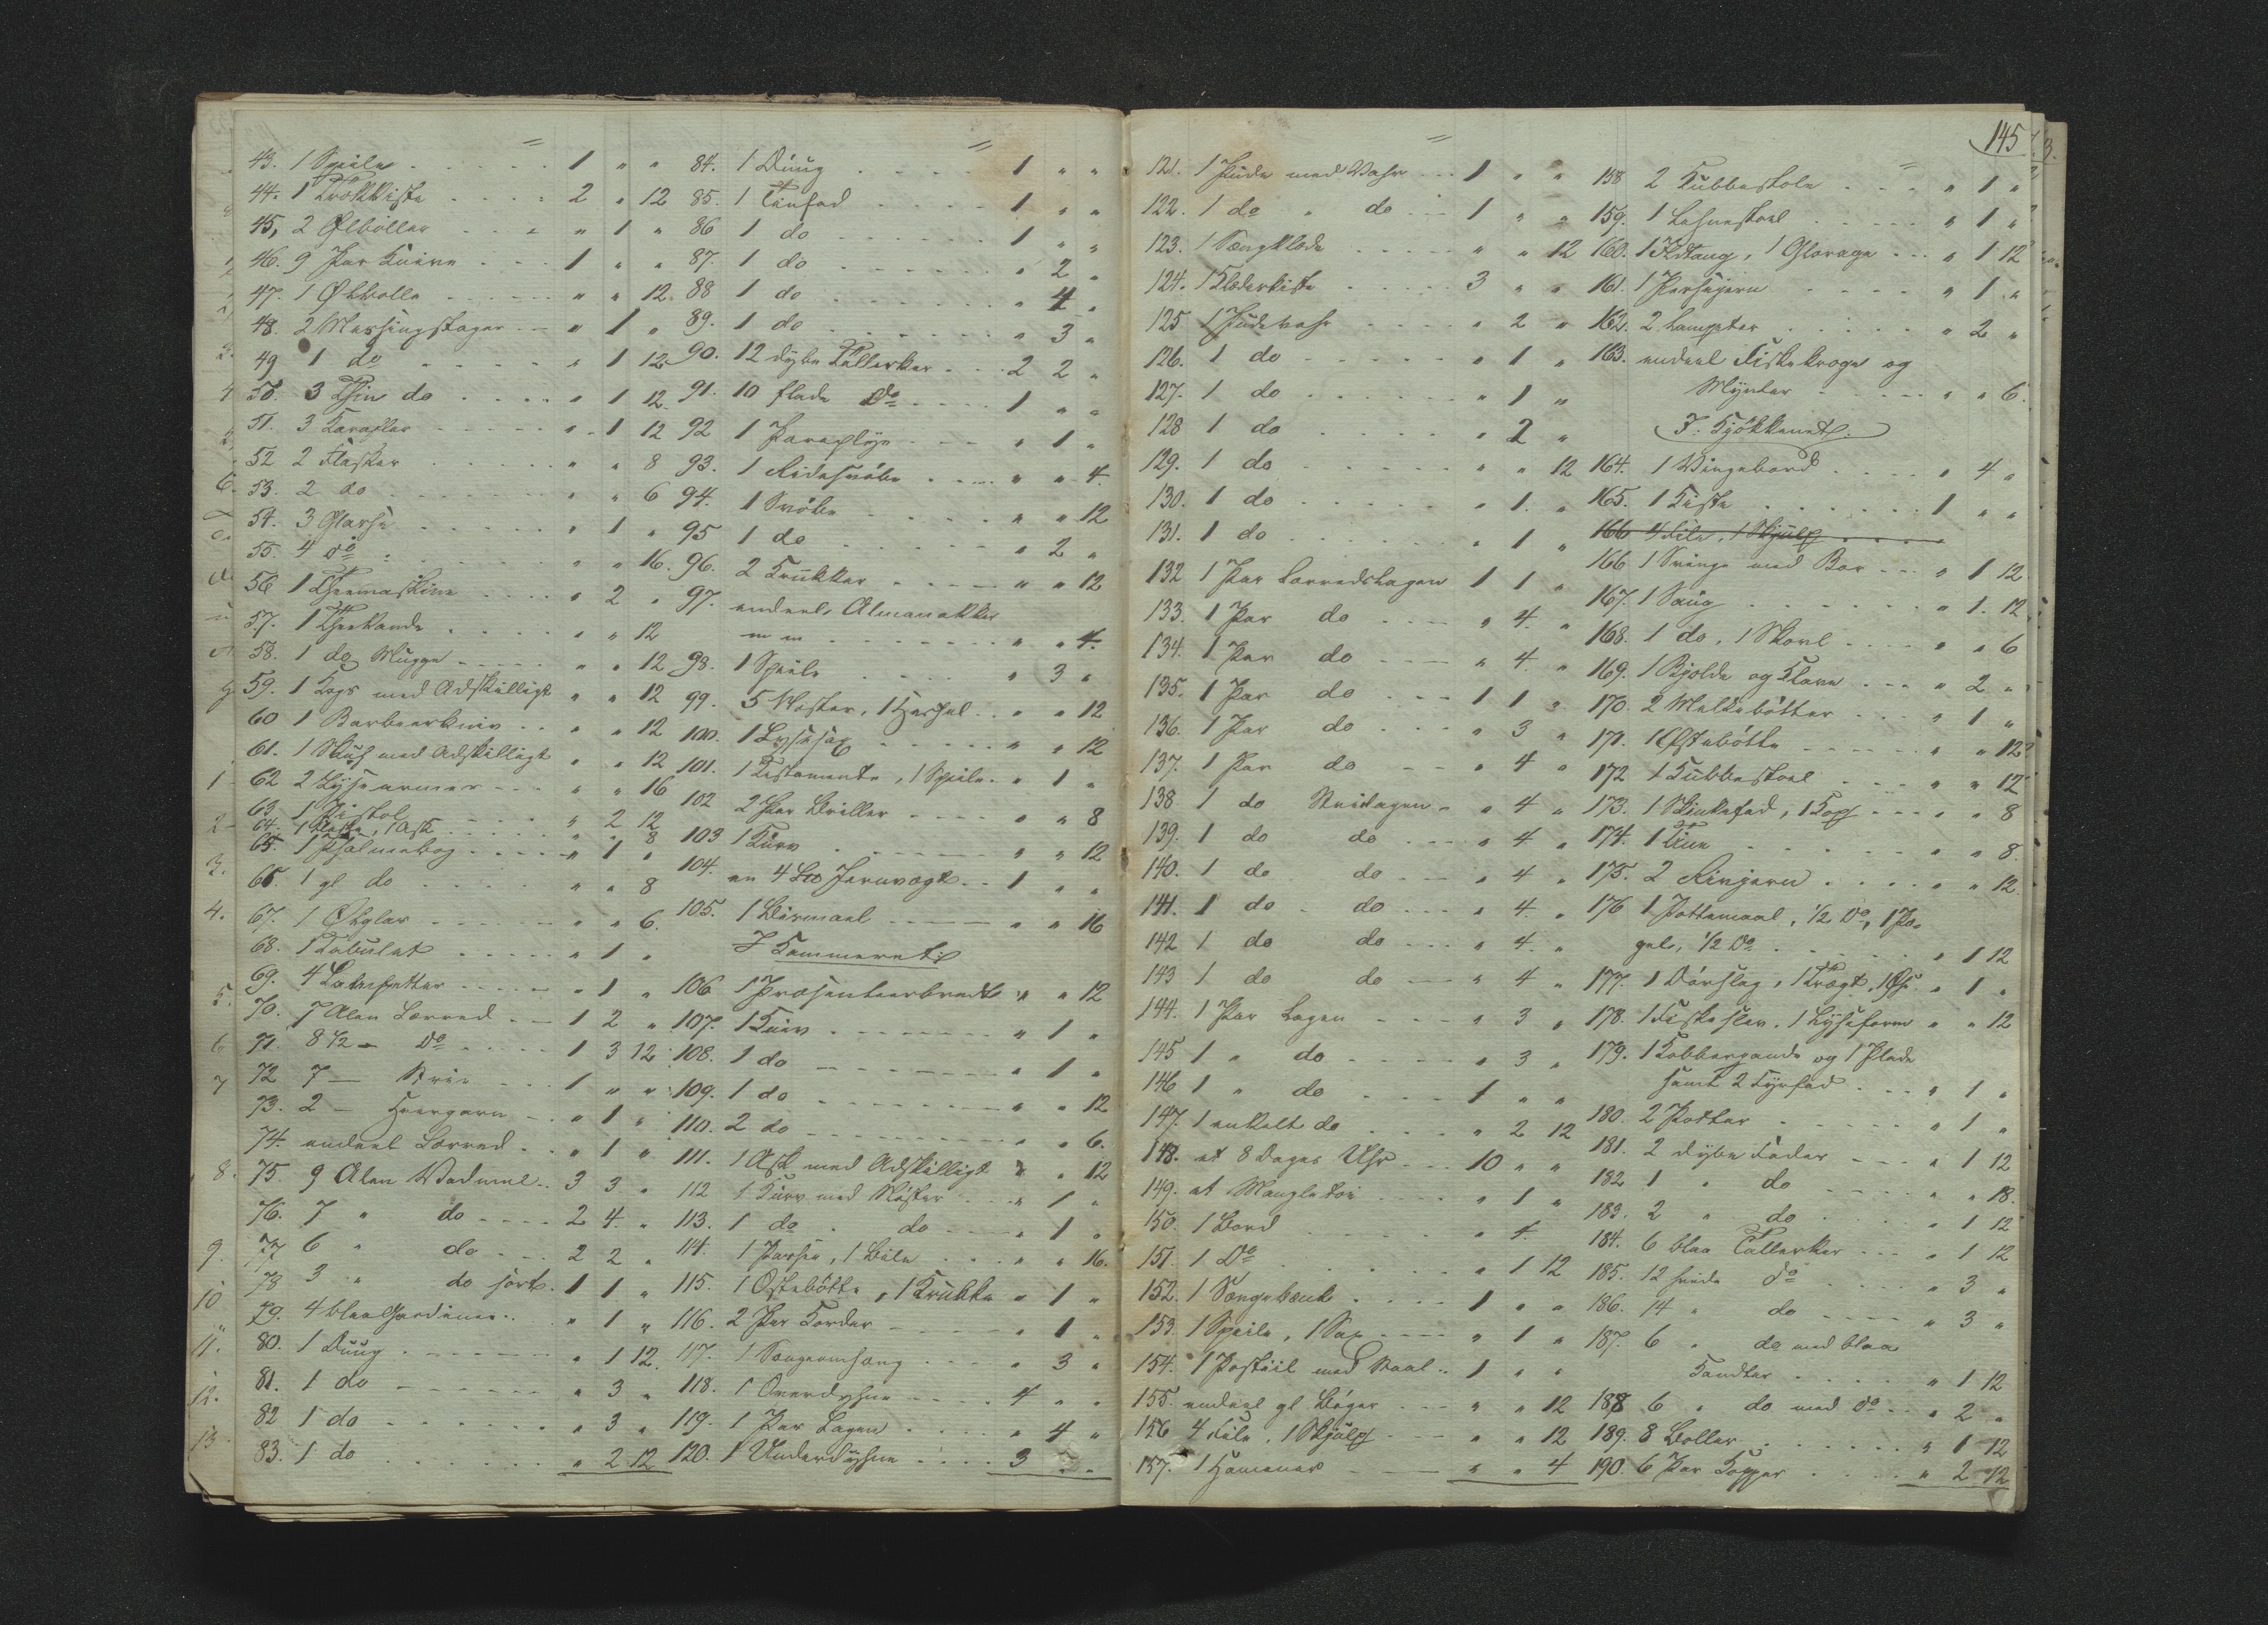 43. 1 Speile . . . . . 1 " "
44. 1 Trækkiste . . . . 2 " 12
45, 2 Ølboller . . . " 1 "
46. 9 Par Knive . . . 1 " "
47. 1 Ølbolle . . . . " " 12.
48. 2 Messingstager . . " 1 "
49 1 do . . . . . " 1 12
50. 3 Thin do . . . . " 1 12
51. 3 Karafler . . . . " 1 12
52 2 Flasker . . . . " " 8
53. 2 do . . . . . " " 6
54. 3 Glasse . . . . . " 1 "
55. 4 do . . . . . " " 16.
56 1 Theemaskine . . . . " 2 "
57. 1 Theekande . . . . " " 12
58. 1 do Mugge . . . . " " 12
59. 1 Kops med Adskilligt " " 12
60 1 Barbeerkniv . . " " 12
61. 1 Skuf med Adskilligt " " 12
62 2 Lysearmer . . . " " 16
63. 1 Pistol . . . . " 2 12
64. 1 Æske, 1 Ask . . . . " " 8
65. 1 Psalmebog . . . . " 1 "
66. 1 gl do . . . . " " 8
67. 1 Ølglas . . . . " " 6.
68. 1 Tabulet . . . . " 1 "
69. 4 Lampetter . . . . " 1 "
70. 7 Alen Lærred . . 1 2 "
71. 8 1/2 - do . . . . 1 3 12
72 7 — Strie . . . 1 " "
73. 2 — Hvergarn . . " 1 "
74. endeel Lærred . . " 1 "
75. 9 Alen Vadmel . . 3 3 "
76. 7 " do . . . . 2 4. "
77. 6 " do . . . 2 2 "
78 3 " do sort . 1 1 "
79. 4 blaa Gardiner . . " 1 "
80. 1 Duug . . . . . " 1 12.
81. 1 do . . . . . " 3 "
82 1 do . . . . . " 3 "
83. 1 do . . . . . " 2 12
84. 1 Duug . . . . . 1 " "
85. 1 Tinfad . . . . . 1 " "
86 1 do . . . . . 1 " "
87. 1 do . . . . . " 2 "
88 1 do . . . . . " 4 "
89. 1 do . . . . . " 3 "
90. 12 dybe Tallerker . . . 2 2 "
91. 10 flade Do . . . . 1 " "
92 1 Paraplye . . . . " 1 "
93. 1 Ridesvøbe . . . . " " 4.
94. 1 Svøbe . . . . " " 12
95 1 do . . . . . " 2 "
96. 2 Krukker . . . . " " 12
97. endeel Almanakker
m m . . . . . " " 4.
98. 1 Speile . . . . " 3 "
99. 5 Vester, 1 Hespel . . " " 12
100. 1 Lysesax . . . . " " 12
101. 1 Testamente, 1 Speile . " 1 "
102 2 Par Briller . . . . " " 8
103 1 Kurv . . . . " " 12
104. en 4 Lod Jernvægt . . 1 " "
105. 1 Bismaal . . . . " " 16
I Kammeret
106 1 Præsenteerbredt " " 12
107. 1 Kniv . . . . . " 1 "
108. 1 do . . . . . " 1 "
109. 1 do . . . . . " " 12
110. 2 do . . . . . " " 6.
111. 1 Ask med Adskilligt " " 12
112 1 Kurv med Nøster . . . " 1 "
113. 1 do . do . . . " 1 "
114. 1 Passer, 1 Bile . . . " " 16.
115. 1 Ostebøtte, 1 Krukke " 1 "
116. 2 Par Korder . . . . " 1 "
117. 1 Sengeomhæng . . . . " 3 "
118. 1 Overdyhne . . . . 4 " "
119. 1 Par Lagen . . . . " 4 "
120. 1 Underdyhne . . . . 3 " "
145
121. 1 Pude med Vahr . . . 1 " "
122. 1 do " do . . . 1 " "
123. 1 Sengklæde . . . . " " 12
124. 1 Klæderkiste . . . . 3 " "
125 1 Pudevahr . . . . " 2 "
126. 1 do . . . . . " 1 "
127. 1 do . . . . . " 1 "
128 1 do . . . . . " 2 "
129. 1 do . . . . . " " 12
130. 1 do . . . . . " 1. "
131. 1 do . . . . . " 1 "
132 1 Par Lærredslagen 1 1 "
133. 1 Par do . . . " 4. "
134. 1 Par do . . . " 4. "
135. 1 Par do . . . 1 1 "
136. 1 Par do . . . " 3 "
137. 1 Par do . . . " 4 "
138. 1 do Strilagen . " 4 "
139. 1 do do . . . " 4 "
140. 1 do do . . . " 4 "
141. 1 do - do . . . " 4. "
142 1 do do . . . " 4. "
143 1 do do . . . " 4 "
144. 1 Par Lagen . . . . " 3 "
145 1 " do . . . . " 3 "
146 1 " do . . . . 1 " "
147. 1 enkelt do . . . . " 2 12
148. et 8 Dages Uhr . . . 10 " "
149. et Mangletøi . . . . " 1 "
150. 1 Bord . . . . . " 4.
151. 1 Do . . . . . " 1 12
152. 1 Sengebænk . . . . 1 " "
153. 1 Speile, 1 Sax . . . . " 1 "
154. 1 Postiil med Staal . . 1 " "
155. endeel gl Bøger . . . " " 12
156 4 File, 1 Skjulp . . . " " 12
157. 1 Hammer . . . . " " 4
158 2 Kubbestole . . . " 1 "
159. 1 Lehnestoel . . . . " 1 "
160. 1 Ildtang, 1 Glorage . . . " 1 12
161. 1 Persejern . . . . " 1 "
162. 2 Lampeter . . . . " 2 "
163. endeel Fiskekroge og
Mynter . . . . " " 6.
I Kjøkkenet.
164. 1 Vingebord . . . . " 4 "
165. 1 Kiste . . . . . 1 " "
166 4 File, 1 Skjulp . . . .
166 1 Svinge med Bor . . . " 1 12
167. 1 Saug . . . . . " 1. 12
168. 1 do, 1 Skovl . . . . " " 6
169. 1 Bjelde og Klave . . . " 2 "
170. 2 Melkebøtter . . . " 1 "
171. 1 Ostebøtte . . . . " " 12
172 1 Kubbestoel . . . " " 12
173. 1 Skinkefad, 1 Kop . . . " " 8
174. 1 Tine . . . . . " " 8.
175. 2 Rivjern . . . . " " 12.
176 1 Pottemaal, 1/2 Do, 1 Pæ-
gel, 1/2 Do . . . . . " 1 12
177. 1 Dørslag, 1 Tragt, 1 Øse " 1 "
178. 1 Fiskeslev, 1 Lyseform " " 12
179. 1 Kobberpande og 1 Plade
samt 2 Fyrfad . . . " 1 "
180. 2 Potter . . . . . " 1 "
181. 2 dybe Fader . . . " 1 12
182. 1 " do . . . . " " 18.
183. 2 " do . . . . " 1 12
184. 6 blaa Tallerker . . . " 1 12
185. 12 hvide do . . . . " 3 "
186. 14 " do . . . . " 3 "
187. 6 " do med blaa
Kandter . . . . " 1 12
188 6 " do med do . . " 2 "
189. 8 Boller . . . . . " 1 12
190. 6 Par Kopper . . . . " 2 12